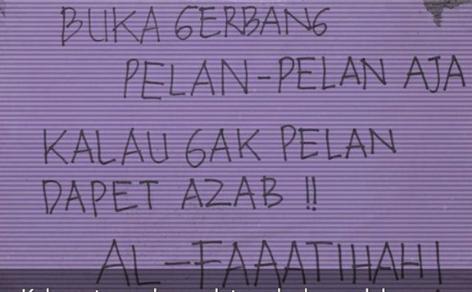 BUKA GERBANG
PELAN-PELAN AJA
KALAU GAK PELAN
DAPET AZAB !!
AL-FAAATIHAH!